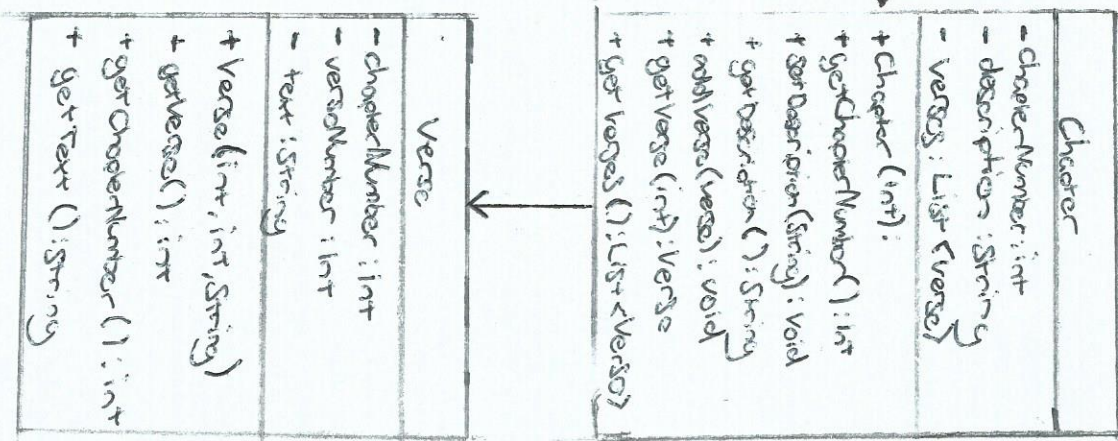 Chapter
- chapterNumber : int
- description : String
- verses : List <verse>
+ Chapter (int) :
+ getChapterNumber() : int
+ setDescription(String) : void
+ getDescription () : String
+ addVerse(verse) : void
+ getVerse (int) : Verse
+ getVerses () : List <Verse>
Verse
- chapterNumber : int
- verseNumber : int
- text : String
+ Verse (int, int, String)
+ getVerse() : int
+ getChapterNumber () : int
+ getText () : String